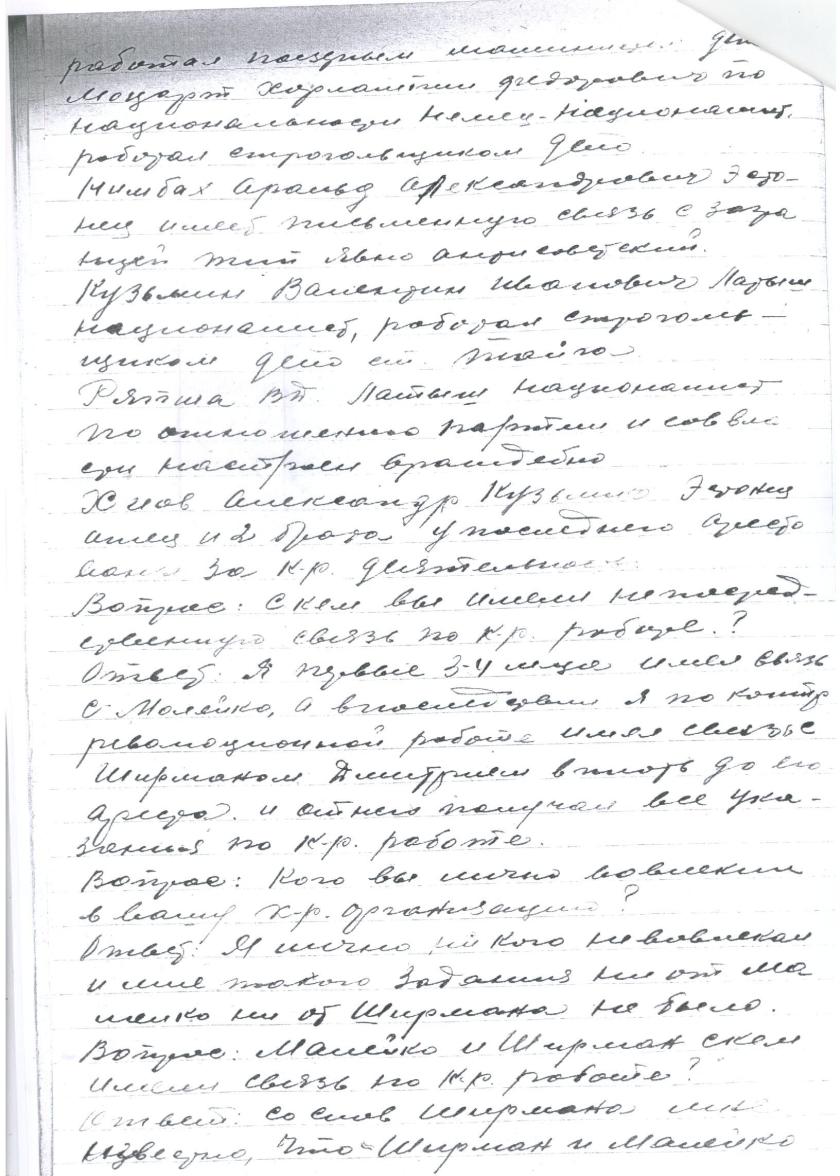 работал поездным машинистом
Моцарт Харлампий Федорович по
национальности немец-националист,
работал строгольщиком депо
Александрович Эсто-
нец имеет письменную связь с загра
ницей тип явно антисоветский.
Кузьмин Валентин Иванович Латыш
националист, работал строголь-
щиком депо ст. Тайга
ВП. Латыш националист
по отношению партии и соввла
сти настроен враждебно
Александр Кузьмич Эстонец
отец и 2 брата у последнего аресто
ваны за к-р. деятельность.
Вопрос: С кем вы имели непосред-
ственную связь по к-р. работе.?
Ответ: Я первые 3-4 м-ца имел связь
с Малейко, а впоследствии я по контр
революционной работе имел связь с
Ширманом Дмитрием вплоть до его
ареста. и от него получал все ука-
зания по к-р. работе.
Вопрос: Кого вы лично вовлекли
в вашу к-р. организацию?
Ответ: Я лично ни кого не вовлекал
и мне такого задания ни от Ма
лейко ни от Ширмана не было.
Вопрос: Малейко и Ширман с кем
имели связь по к-р. работе?
Ответ: со слов Ширмана мне
известно, что Ширман и Малейко